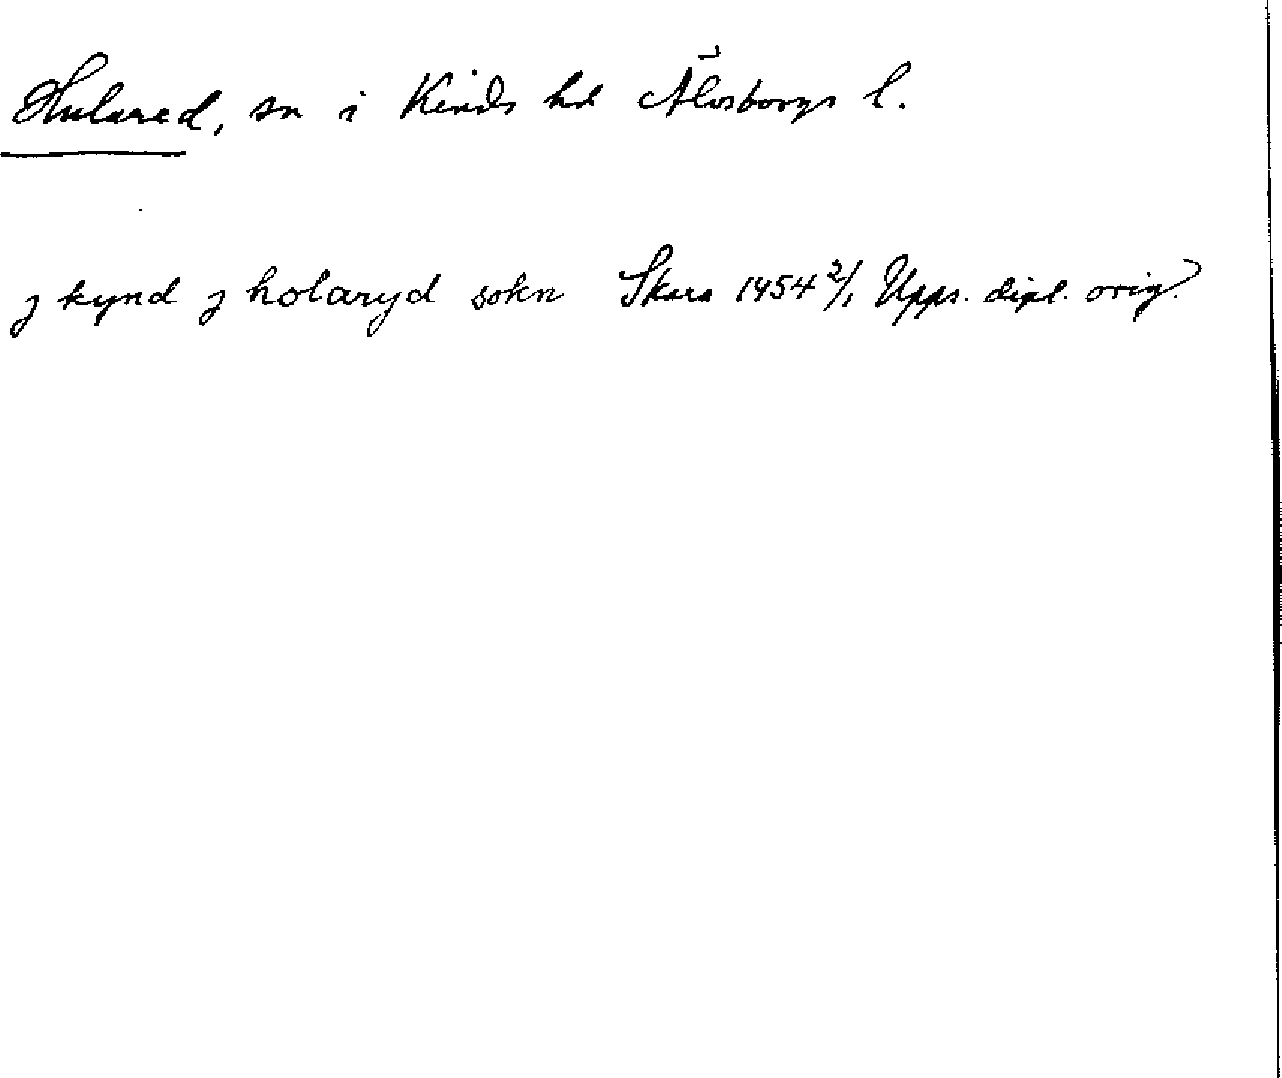 Hulared, sn i Kinds hd Älvsborgs l.
j kynd j holaryd sokn Skara 1454 2/1 Upps. dipl. orig.